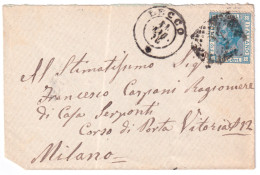 LECCO
Al Stimatissimo Sig
Francesco Carpani Ragioniere
di Casa Serponti
Corso di Porta Vittoria N12
Milano